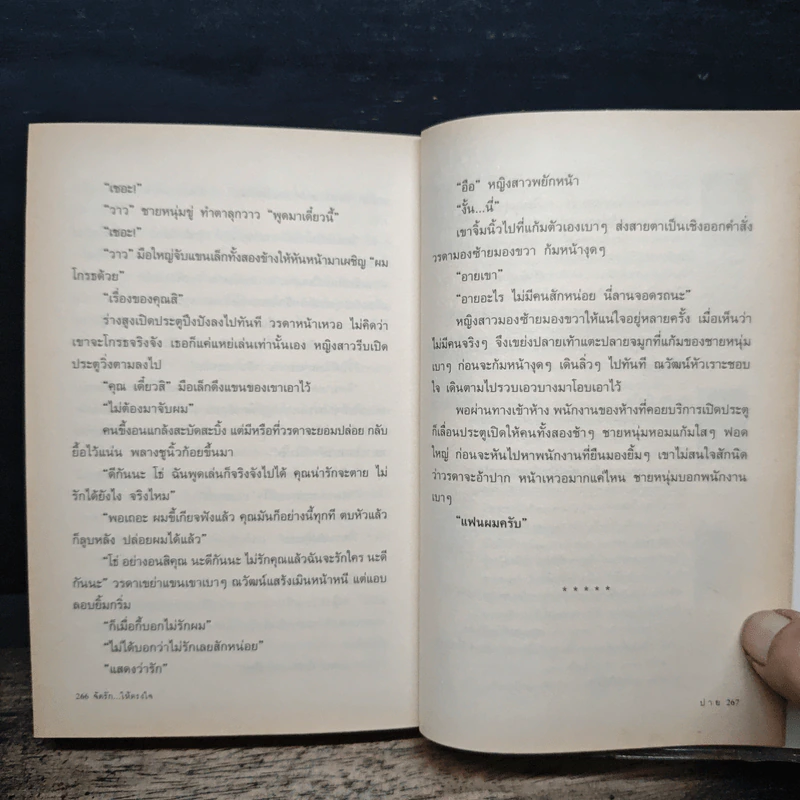 “เชอะ!”
“วาว” ชายหนุ่มขู่ ทำตาลุกวาว “พูดมาเดี๋ยวนี้”
“เชอะ!”
“วาว” มือใหญ่จับแขนเล็กทั้งสองข้างให้หันหน้ามาเผชิญ “ผม
โกรธด้วย”
“เรื่องของคุณสิ”
ร่างสูงเปิดประตูปึงปังลงไปทันที วรดาหน้าเหวอ ไม่คิดว่า
เขาจะโกรธจริงจัง เธอก็แค่แหย่เล่นเท่านั้นเอง หญิงสาวรีบเปิด
ประตูวิ่งตามลงไป
“คุณ เดี๋ยวสิ” มือเล็กดึงแขนของเขาเอาไว้
“ไม่ต้องมาจับผม”
คนขี้งอนแกล้งสะบัดสะบิ้ง แต่มีหรือที่วรดาจะยอมปล่อย กลับ
ยื้อไว้แน่น พลางชูนิ้วก้อยขึ้นมา
“ดีกันนะ โธ่ ฉันพูดเล่นก็จริงจังไปได้ คุณน่ารักจะตาย ไม่
รักได้ยังไง จริงไหม”
“พอเถอะ ผมขี้เกียจฟังแล้ว คุณมันก็อย่างนี้ทุกที ตบหัวแล้ว
ก็ลูบหลัง ปล่อยผมได้แล้ว”
“โธ่ อย่างอนสิคุณ นะดีกันนะ ไม่รักคุณแล้วฉันจะรักใคร นะดี
กันนะ” วรดาเขย่าแขนเขาเบาๆ ณวัฒน์แสร้งเมินหน้าหนี แต่แอบ
ลอบยิ้มกริ่ม
“ก็เมื่อกี้บอกไม่รักผม”
“ไม่ได้บอกว่าไม่รักเลยสักหน่อย”
“แสดงว่ารัก”
266 จัดรัก...ให้ตรงใจ
“อือ” หญิงสาวพยักหน้า
“งั้น...นี่”
เขาจิ้มนิ้วไปที่แก้มตัวเองเบาๆ ส่งสายตาเป็นเชิงออกคำสั่ง
วรดามองซ้ายมองขวา ก้มหน้างุดๆ
“อายเขา”
“อายอะไร ไม่มีคนสักหน่อย นี่ลานจอดรถนะ”
หญิงสาวมองซ้ายมองขวาให้แน่ใจอยู่หลายครั้ง เมื่อเห็นว่า
ไม่มีคนจริงๆ จึงเขย่งปลายเท้าแตะปลายจมูกที่แก้มของชายหนุ่ม
เบาๆ ก่อนจะก้มหน้างุดๆ เดินลิ่วๆ ไปทันที ณวัฒน์หัวเราะชอบ
ใจ เดินตามไปรวบเอวบางมาโอบเอาไว้
พอผ่านทางเข้าห้าง พนักงานของห้างที่คอยบริการเปิดประตู
ก็เลื่อนประตูเปิดให้คนทั้งสองช้าๆ ชายหนุ่มหอมแก้มใสๆ ฟอด
ใหญ่ ก่อนจะหันไปหาพนักงานที่ยืนมองยิ้มๆ เขาไม่สนใจสักนิด
ว่าวรดาจะอ้าปาก หน้าเหวอมากแค่ไหน ชายหนุ่มบอกพนักงาน
เบาๆ
“แฟนผมครับ”
* * * * *
ป่าย 267